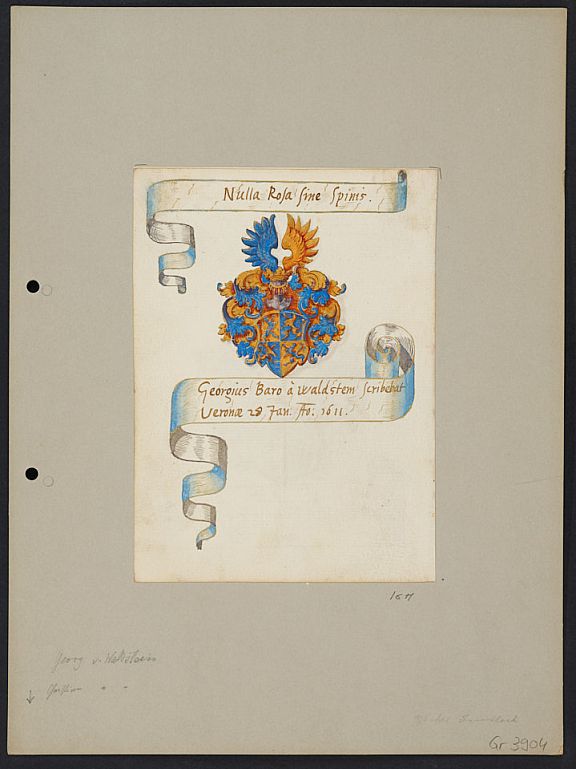 Nulla Rosa sine Spinis.
Georgius Baro à Waldstein scribebat
Veronæ 28 Jan. Ao. 1611.
Georg v. Waldstein
Gr 3904